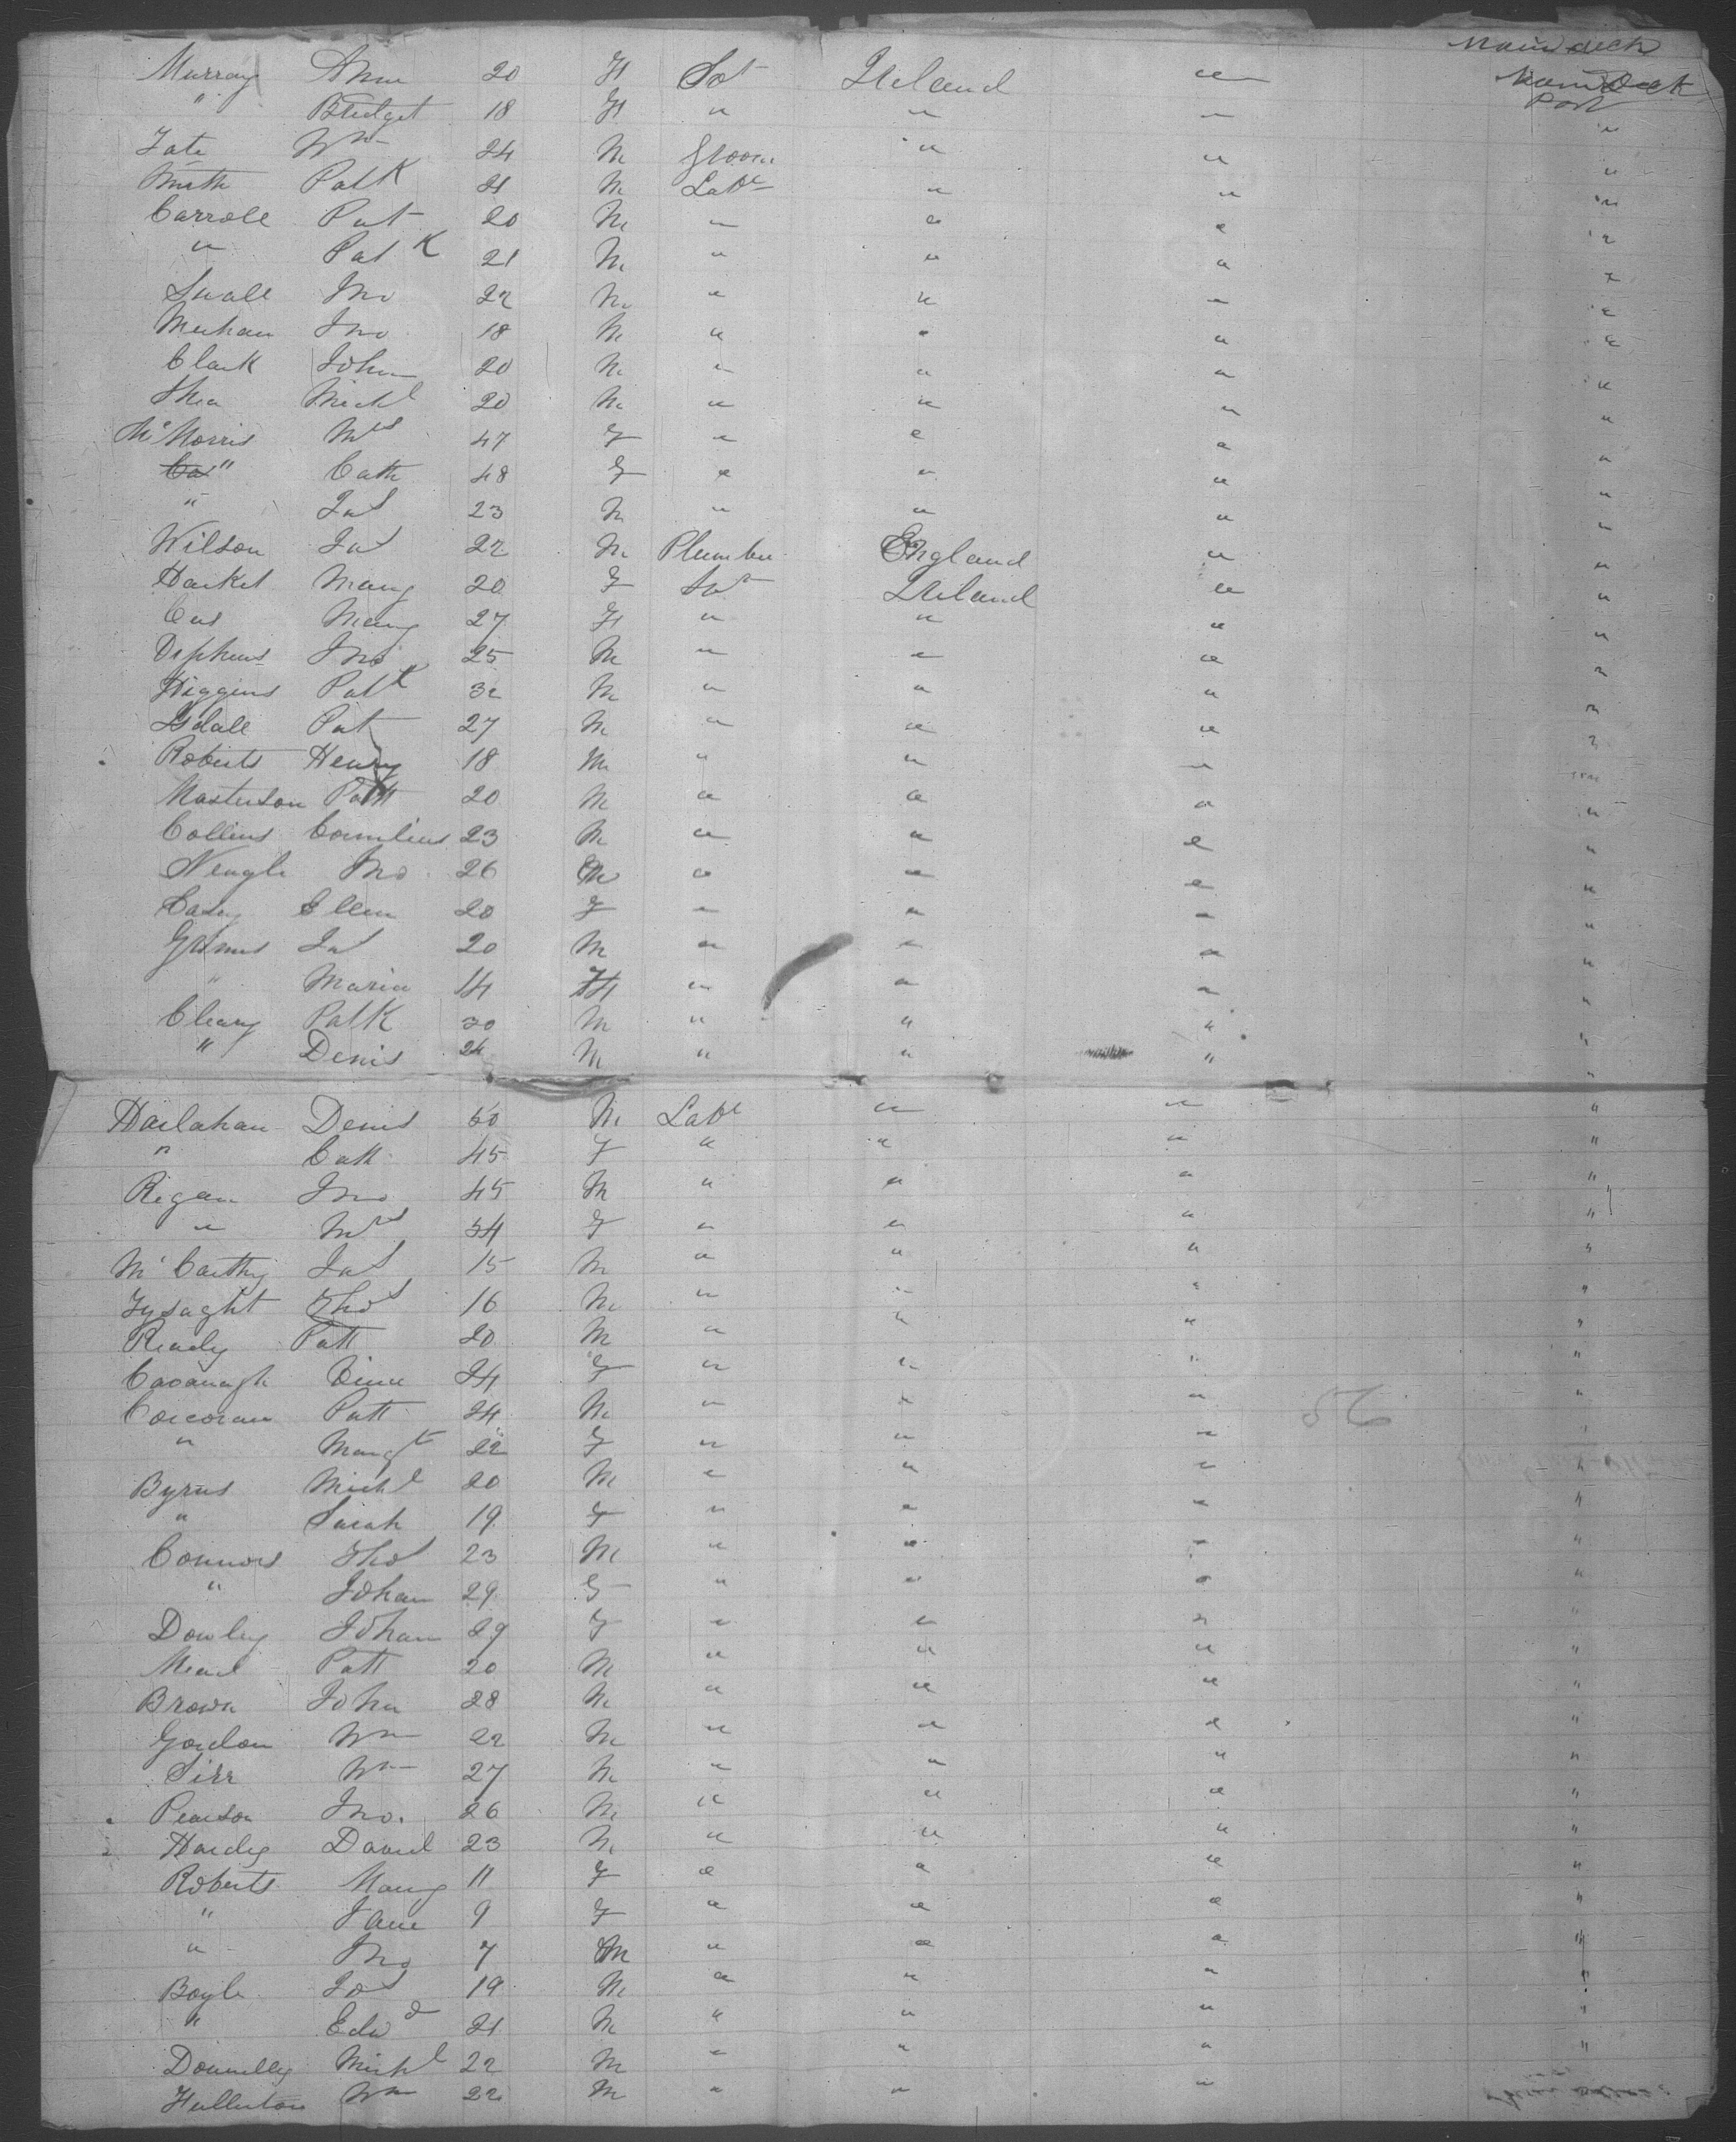 Main deck
Murray Ann 20 F Sp't Ireland " Main Deck
" Bridget 18 F " " " Port
Tate Wm 24 M Groom " " "
Smith Patk 21 M Labr " " "
Carroll Pat 20 M " " " "
" Patk 21 M " " " "
Small Jno 22 M " " " "
Meehan Jno 18 M " " " "
Clark John 20 M " " " "
Shea Michl 20 M " " " "
McMorris Mrs 47 F " " " "
" Cath 48 F " " " "
" Jas 23 M " " " "
Wilson Jas 22 M Plumber England " "
Harket Mary 20 F Ireland " "
Mary 27 F " " " "
Jno 25 M " " " "
Higgins Patk 32 M " " " "
Pat 27 M " " " "
Roberts Henry 18 M " " " "
Masterson Patt 20 M " " " "
Collins Cornelius 23 M " " " "
Neagle Jno 26 M " " " "
Casey Ellen 20 F " " " "
Grimes Jas 20 M " " " "
" Maria 14 F " " " "
Cleary Patk 30 M " " " "
" Denis 24 M " " " "
Hallahan Denis 50 M Labr " " "
" Cath 45 F " " " "
Regan Jno 45 M " " " "
" Mrs 54 F " " " "
McCarthy Jas 15 M " " " "
Lysaght Thos 16 M " " " "
Ready Patt 20 M " " " "
Cavanagh 24 F " " " "
Corcoran Patt 24 M " " " "
" Margt 22 F " " " "
Byrns Michl 20 M " " " "
" Sarah 19 F " " " "
Connors Thos 23 M " " " "
" Johan 29 F " " " "
Dowley Johan 29 F " " " "
Mead Patt 20 M " " " "
Brown John 28 M " " " "
Gordon Wm 22 M " " " "
Sirr Wm 27 M " " " "
Pearson Jno. 26 M " " " "
Hardy David 23 M " " " "
Roberts Mary 11 F " " " "
" Jane 9 F " " " "
" Jno 7 M " " " "
Boyle Jos 19 M " " " "
" Edwd 21 M " " " "
Donnelly Michl 22 M " " " "
Fullerton Wm 22 M " " "